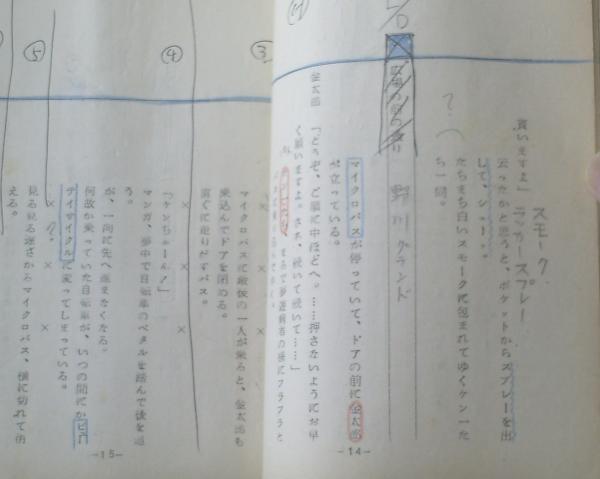 スモーク.
買いますよ」 ラッカースプレー
云ったかと思うと、ポケットからスプレーを出
して、シューッ。
たちまち白いスモークに包まれてゆくケン一た
ち一同。
?
野川グランド
マイクロバスが停っていて、ドアの前に金太郎
が立っている。
金太郎
「どうぞ、ど順に中ほどへ。……押さないようにお早
く願いますよ。さあ、続いて続いて……」
まるで夢遊病者の様にフラフラと
－14－
③
マイクロバスに最後の一人が乗ると、金太郎も
乗込んでドアを閉める。
直ぐに走りだすバス。
× × ×
④
「ケンちゃーん！」
マンガ、夢中で自転車のペダルを踏んで後を追
が、一向に先へ進まなくなる。
何故か乗っていた自転車が、いつの間にかビニ
テイサイクルに変ってしまっている。
× ? × ×
⑤
見る見る遠ざかるマイクロバス、横に切れて消
える。
－15－